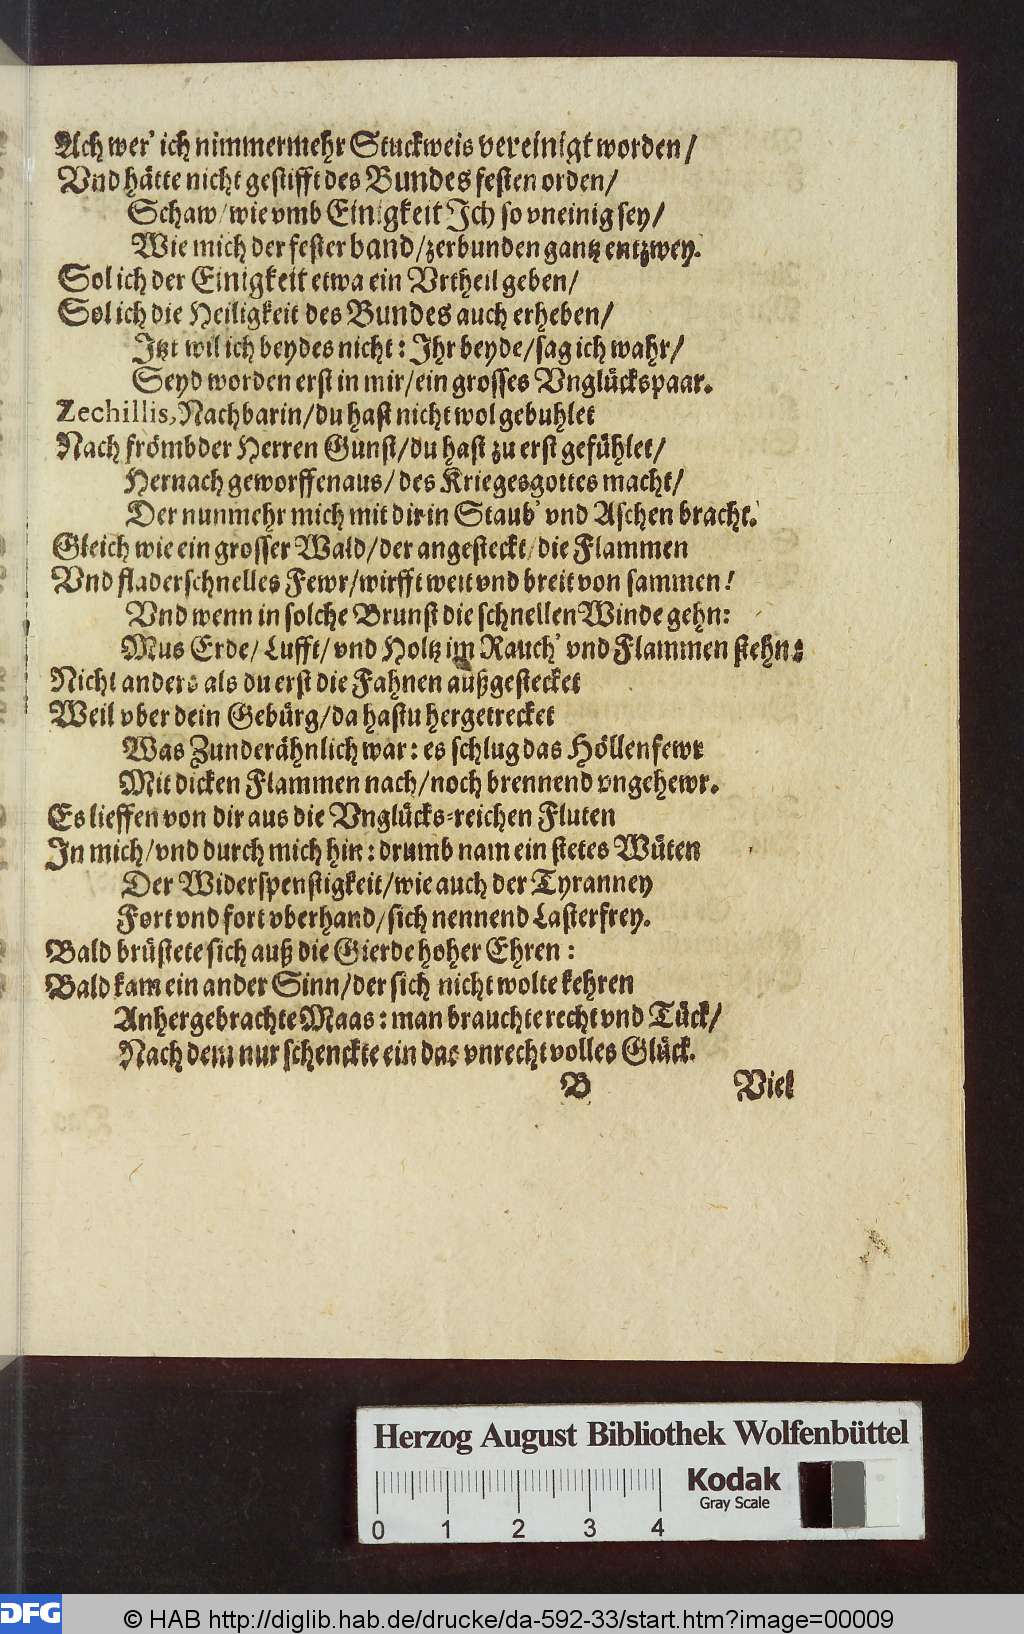 Ach wer' ich nimmermehr Stuckweis vereinigt worden/
Vnd hätte nicht gestifft des Bundes festen orden/
Schaw/wie vmb Einigkeit Ich so vneinig sey/
Wie mich der fester band/zerbunden gantz entzwey.
Sol ich der Einigkeit etwa ein Vrtheil geben/
Sol ich die Heiligkeit des Bundes auch erheben/
Jtzt wil ich beydes nicht: Jhr beyde/sag ich wahr/
Seyd worden erst in mir/ein grosses Vnglückspaar.
Zechillis, Nachbarin/du hast nicht wol gebuhlet
Nach frömbder Herren Gunst/du hast zu erst gefühlet/
Hernach geworffen aus/des Kriegesgottes macht/
Der nunmehr mich mit dir in Staub' vnd Aschen bracht.
Gleich wie ein grosser Wald/der angesteckt/die Flammen
Vnd fladerschnelles Fewr/wirfft weit vnd breit von sammen!
Vnd wenn in solche Brunst die schnellen Winde gehn:
Mus Erde/Lufft/vnd Holtz im Rauch' vnd Flammen stehn:
Nicht anders als du erst die Fahnen außgestecket
Weil vber dein Gebürg/da hastu hergetrecket
Was Zunderähnlich war: es schlug das Höllenfewr
Mit dicken Flammen nach/noch brennend vngehewr.
Es lieffen von dir aus die Vnglücks-reichen Fluten
In mich/vnd durch mich hin: drumb nam ein stetes Wüten
Der Widerspenstigkeit/wie auch der Tyranney
Fort vnd fort vberhand/sich nennend Lasterfrey.
Bald brüstete sich auß die Gierde hoher Ehren:
Bald kam ein ander Sinn/der sich nicht wolte kehren
An hergebrachte Maas: man brauchte recht vnd Tück/
Nach dem nur schenckte ein das vnrecht volles Glück.
B Viel
Herzog August Bibliothek Wolfenbüttel
Kodak
Gray Scale
0 1 2 3 4
DFG © HAB http://diglib.hab.de/drucke/da-592-33/start.htm?image=00009